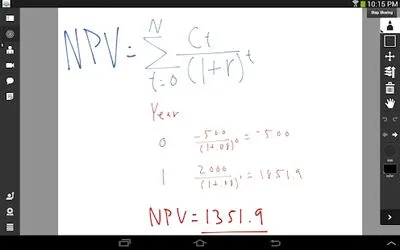 10:15 PM
Stop Sharing
NPV = N∑t=0 Ct/(1+r)^t
Year
0 -500/(1+.08)^0 = -500
1 2000/(1+.08)^1 = 1851.9
NPV = 1351.9